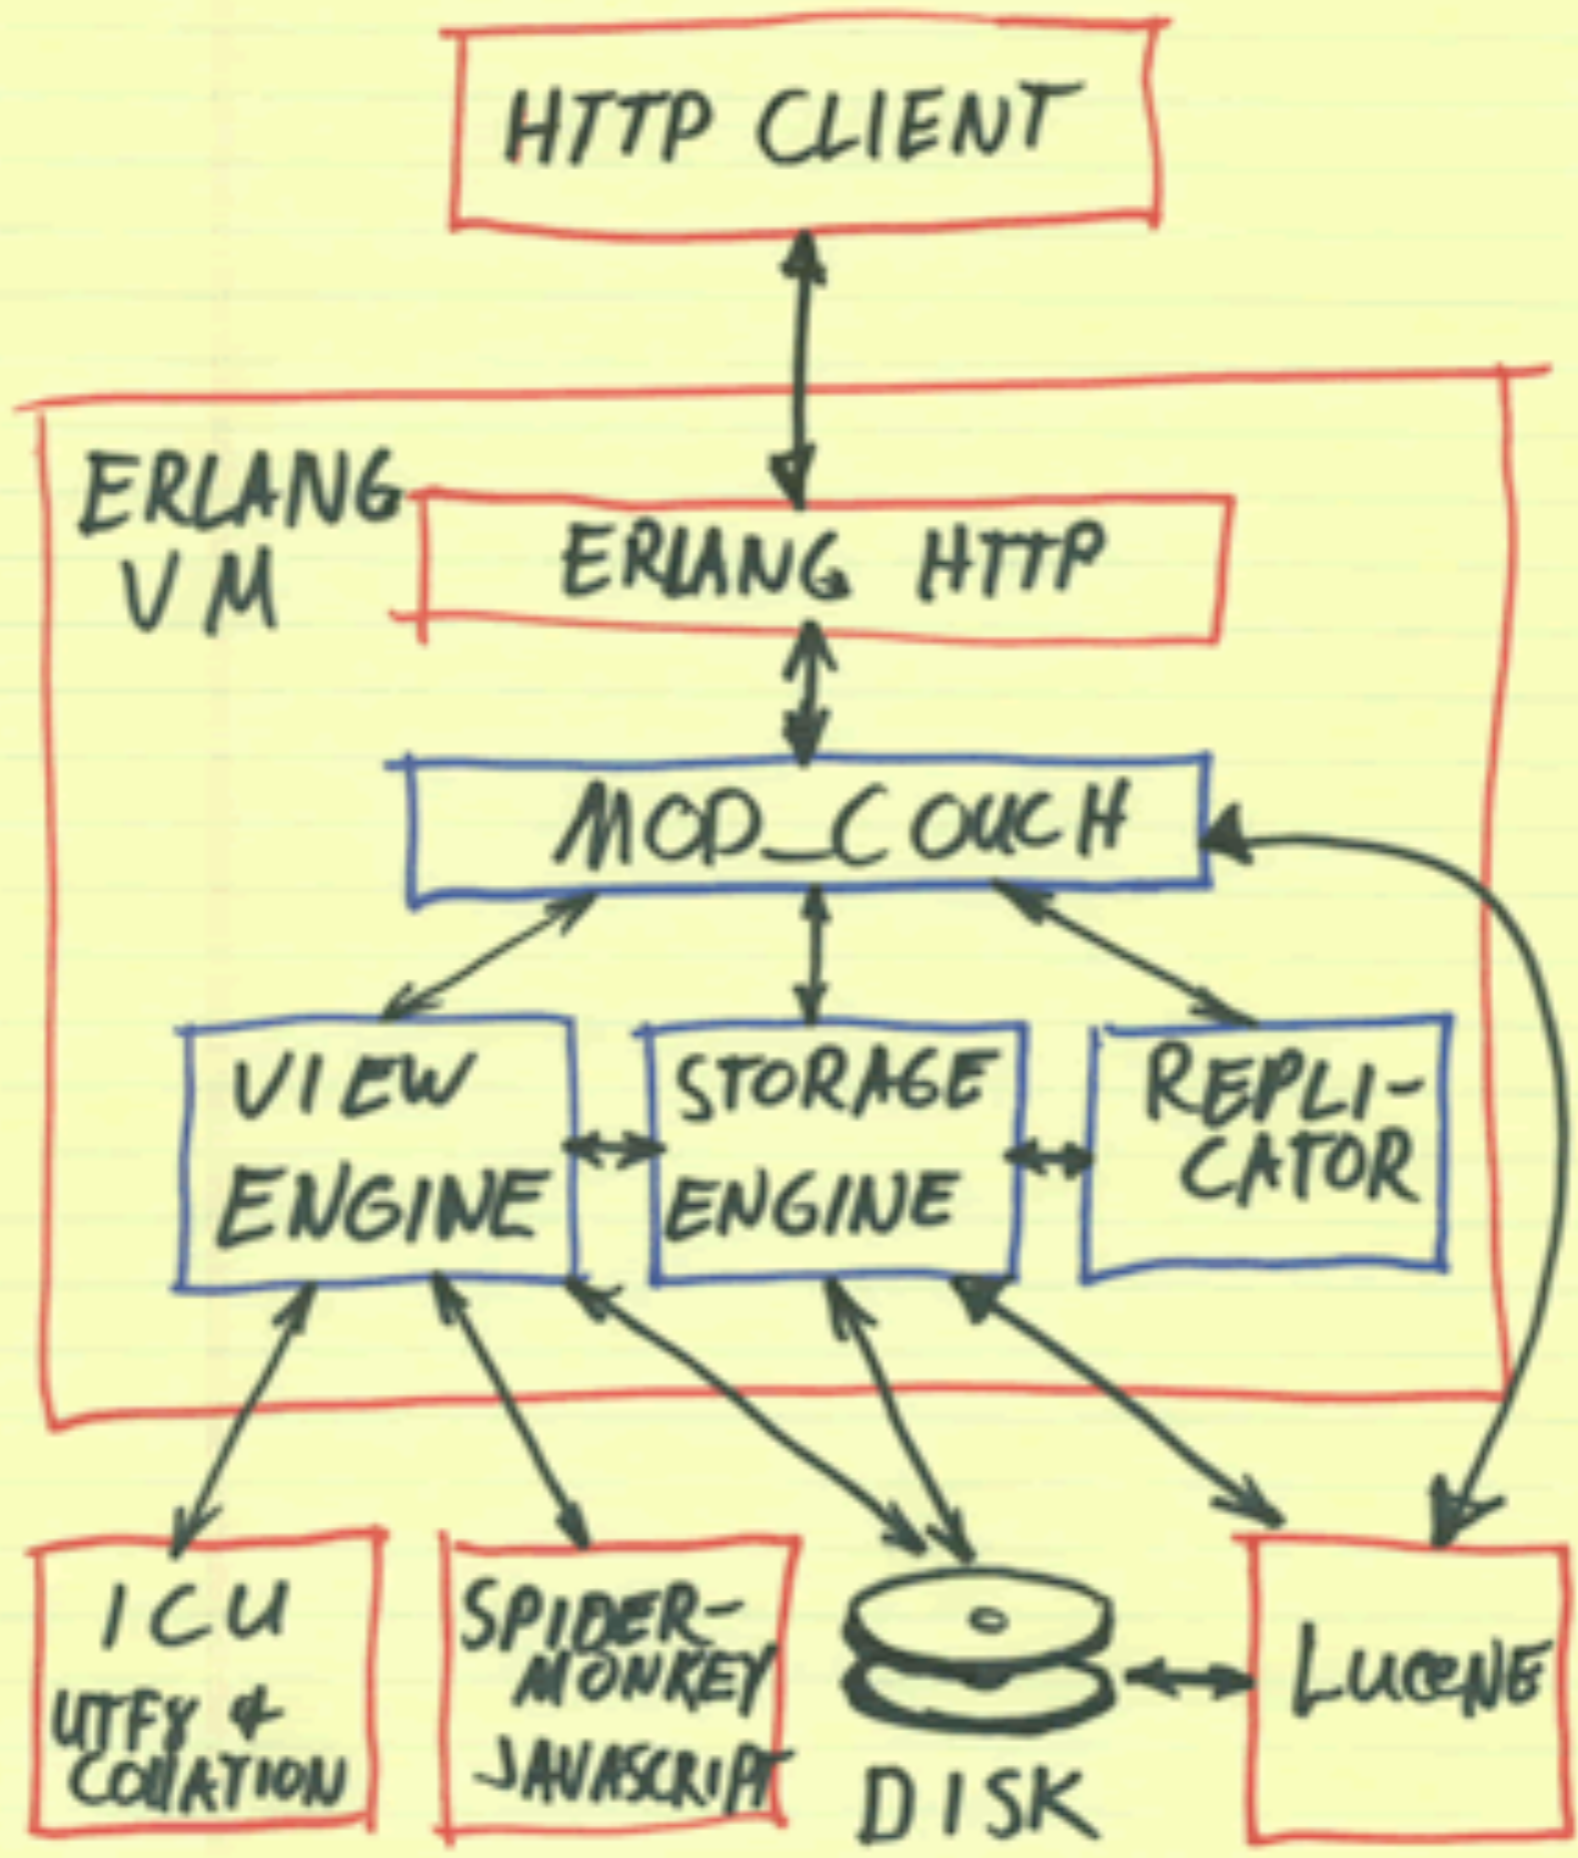 HTTP CLIENT
ERLANG
VM
ERLANG HTTP
MOD_COUCH
VIEW
ENGINE
STORAGE
ENGINE
REPLI-
CATOR
ICU
UTF8 &
COLLATION
SPIDER-
MONKEY
JAVASCRIPT
DISK
LUCENE